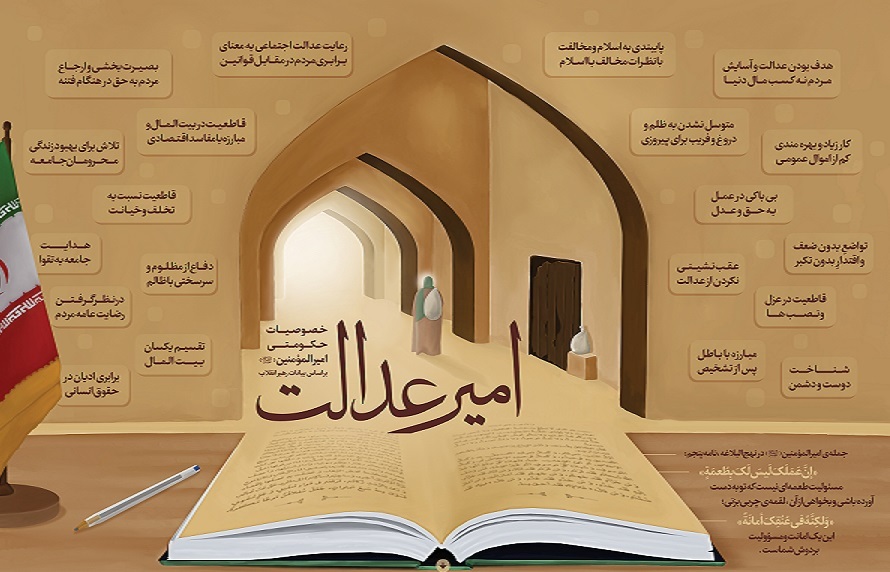 خصوصیات
حکومتی
امیرالمؤمنین
براساس بیانات رهبر انقلاب
امیر عدالت
پایبندی به اسلام و مخالفت
با نظرات مخالف با اسلام
هدف بودن عدالت و آسایش
مردم نه کسب مال دنیا
متوسل نشدن به ظلم و
دروغ و فریب برای پیروزی
کار زیاد و بهره مندی
کم از اموال عمومی
بی باکی در عمل
به حق و عدل
تواضع بدون ضعف
و اقتدار بدون تکبر
عقب نشینی
نکردن از عدالت
قاطعیت در عزل
و نصب ها
مبارزه با باطل
پس از تشخیص
شناخت
دوست و دشمن
رعایت عدالت اجتماعی به معنای
برابری مردم در مقابل قوانین
بصیرت بخشی و ارجاع
مردم به حق در هنگام فتنه
قاطعیت در بیت المال و
مبارزه با مفاسد اقتصادی
تلاش برای بهبود زندگی
محرومان جامعه
قاطعیت نسبت به
تخلف و خیانت
هدایت
جامعه به تقوا
دفاع از مظلوم و
سرسختی با ظالم
در نظر گرفتن
رضایت عامه مردم
تقسیم یکسان
بیت المال
برابری ادیان در
حقوق انسانی
جمله‌ی امیرالمؤمنین در نهج البلاغه، نامه پنجم:
«إِنَّ عَمَلَکَ لَیسَ لَکَ بِطُعمَةٍ»
مسئولیت طعمه‌ای نیست که تو به دست
آورده باشی و بخواهی از آن، لقمه‌ی چربی بزنی؛
«وَلکِنَّهُ فی عُنُقِکَ اَمانَةٌ»
این یک امانت و مسؤولیت
بر دوش شماست.